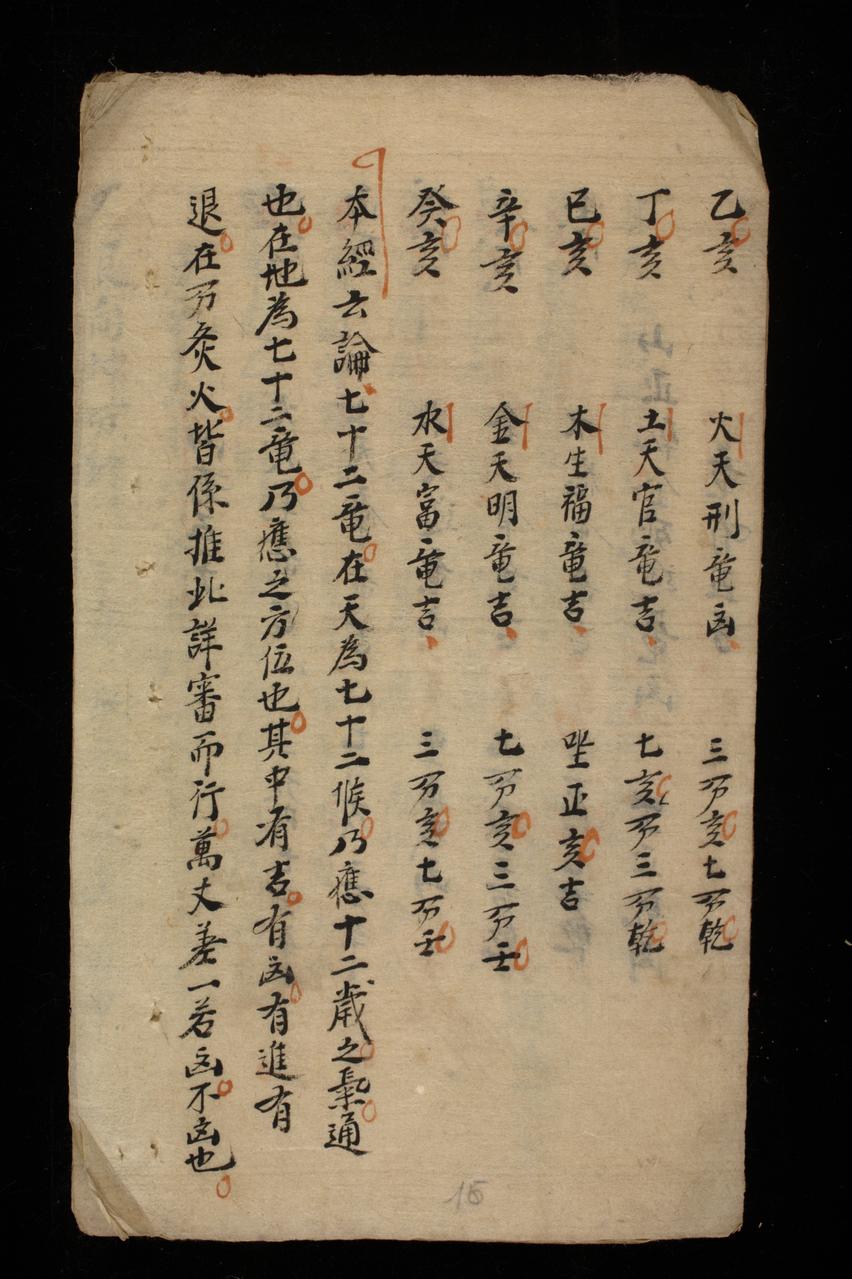 乙亥 火天刑竜凶 三分亥七分乾
丁亥 土天官竜吉 七亥分三分乾
巳亥 木生福竜吉 坐正亥吉
辛亥 金天明竜吉 七分亥三分壬
癸亥 水天富竜吉 三分亥七分壬
本經云論七十二竜在天為七十二候乃應十二歲之氣通
也在地為七十二竜乃應之方位也其中有吉有凶有進有
退在分灸火皆係推此詳審而行萬丈差一若凶不凶也
15